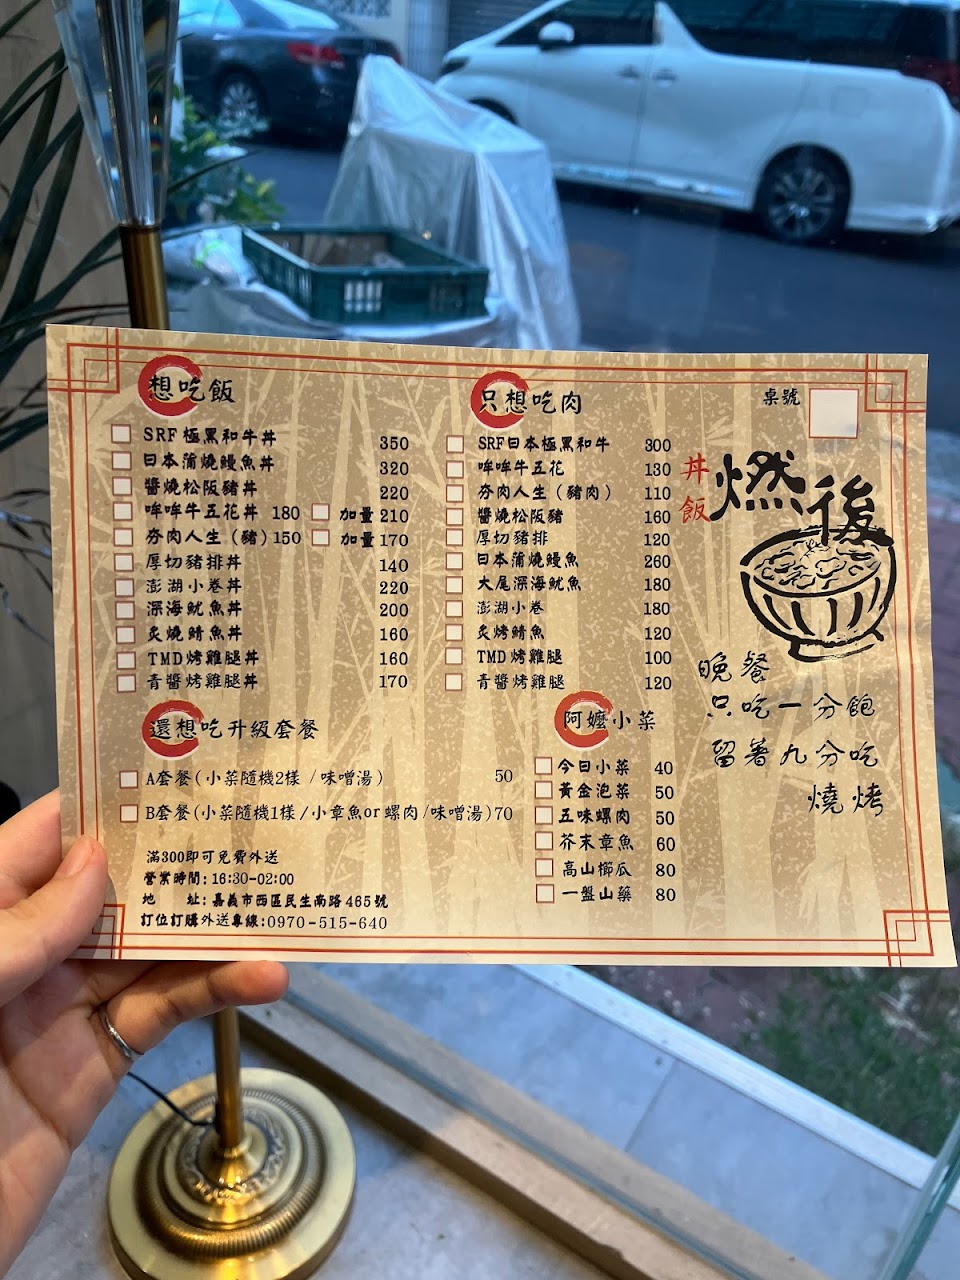 想吃飯
SRF極黑和牛丼 350
日本蒲燒鰻魚丼 320
醬燒松阪豬丼 220
哞哞牛五花丼 180 加量 210
夯肉人生(豬) 150 加量 170
厚切豬排丼 140
澎湖小卷丼 220
深海魷魚丼 200
炙燒鯖魚丼 160
TMD烤雞腿丼 160
青醬烤雞腿丼 170
還想吃升級套餐
A套餐(小菜隨機2樣/味噌湯) 50
B套餐(小菜隨機1樣/小章魚or螺肉/味噌湯) 70
滿300即可免費外送
營業時間:16:30-02:00
地 址:嘉義市西區民生南路465號
訂位訂購外送專線:0970-515-640
只想吃肉
SRF日本極黑和牛 300
哞哞牛五花 130
夯肉人生(豬肉) 110
醬燒松阪豬 160
厚切豬排 120
日本蒲燒鰻魚 260
大尾深海魷魚 180
澎湖小卷 180
炙烤鯖魚 120
TMD烤雞腿 100
青醬烤雞腿 120
阿嬤小菜
今日小菜 40
黃金泡菜 50
五味螺肉 50
芥末章魚 60
高山櫛瓜 80
一盤山藥 80
桌號
燃後
丼飯
晚餐
只吃一分飽
留著九分吃
燒烤